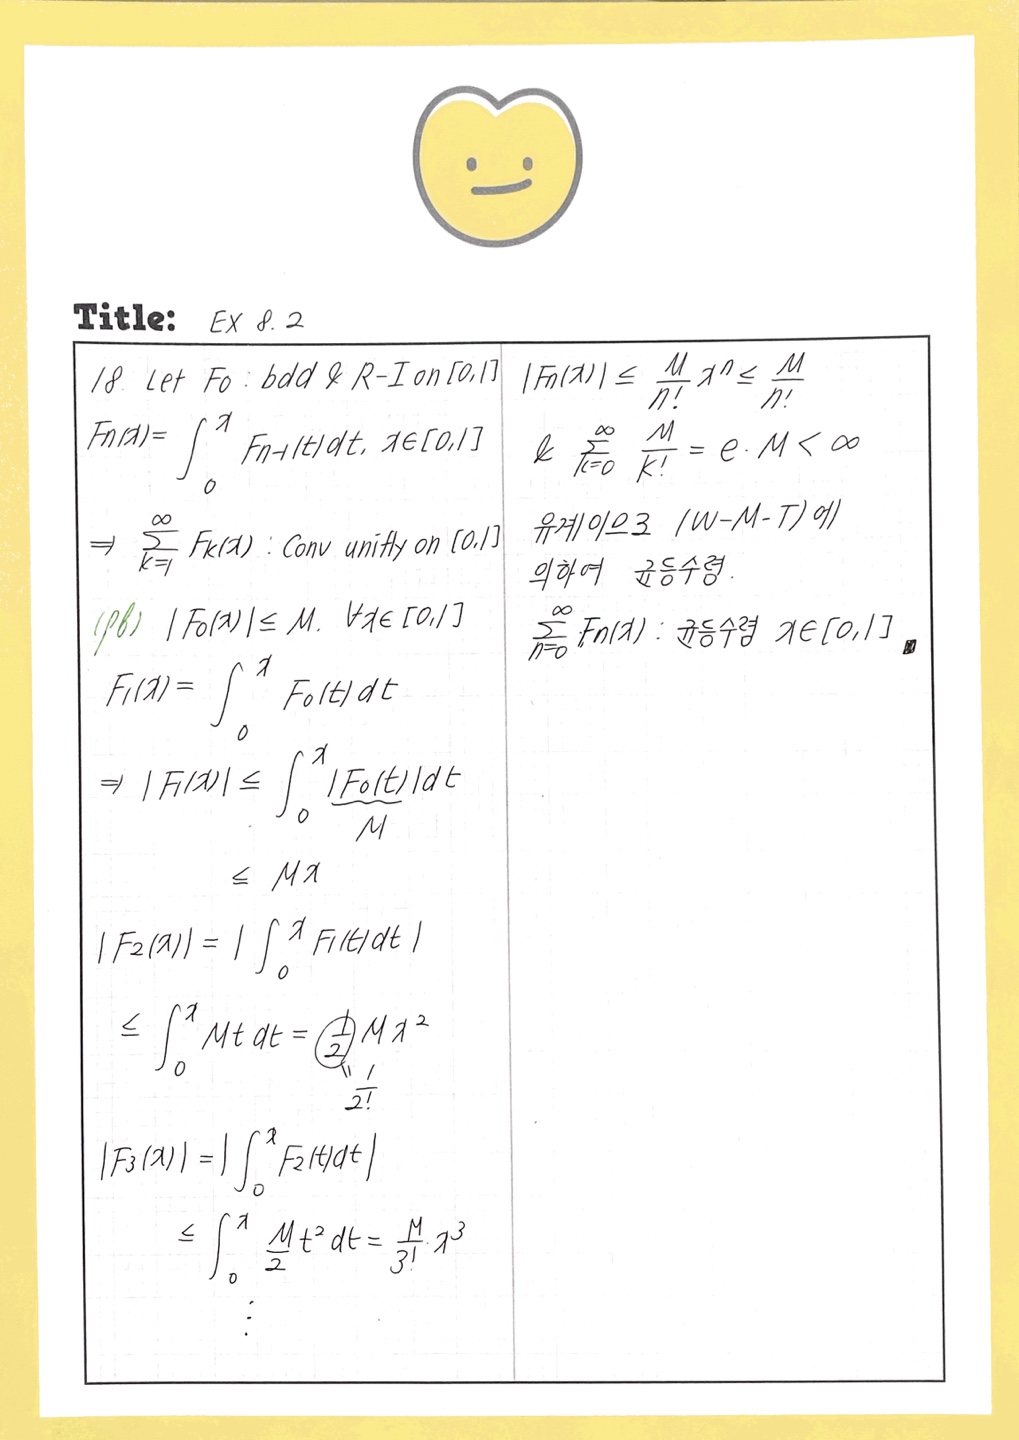 Title: EX 8.2
18. Let F₀ : bdd & R-I on [0,1]
Fn(x) = ∫₀ˣ Fn-1(t)dt, x∈[0,1]
⇒ ∑_{k=1}^{∞} Fk(x) : Conv unifly on [0,1]
(pf) |F₀(x)| ≤ M. ∀x∈[0,1]
F₁(x) = ∫₀ˣ F₀(t)dt
⇒ |F₁(x)| ≤ ∫₀ˣ |F₀(t)|dt
M
≤ Mx
|F₂(x)| = |∫₀ˣ F₁(t)dt|
≤ ∫₀ˣ Mt dt = (1/2) Mx²
" 1/2!
|F₃(x)| = |∫₀ˣ F₂(t)dt|
≤ ∫₀ˣ M/2 t² dt = M/3! · x³
⋮
|Fn(x)| ≤ M/n! xⁿ ≤ M/n!
& ∑_{k=0}^{∞} M/k! = e·M < ∞
유계이므로 (W-M-T)에
의하여 균등수렴.
∑_{n=0}^{∞} Fn(x) : 균등수렴 x∈[0,1]